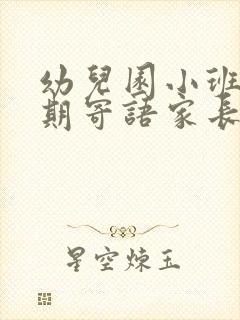 幼兒園小班
期寄語家長
星空煉玉